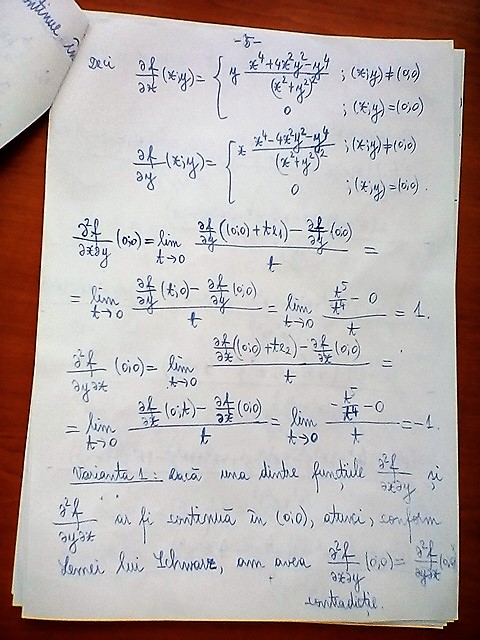 ontinue în
-5-
Deci ∂f/∂x (x;y) = { y (x⁴+4x²y²-y⁴)/(x²+y²)² ; (x;y)≠(0,0)
0 ; (x;y)=(0,0)
∂f/∂y (x;y) = { x (x⁴-4x²y²-y⁴)/(x²+y²)² ; (x;y)≠(0,0)
0 ; (x;y)=(0,0).
∂²f/∂x∂y (0,0) = lim t→0 (∂f/∂y((0,0)+te₁) - ∂f/∂y(0,0))/t =
= lim t→0 (∂f/∂y(t,0) - ∂f/∂y(0,0))/t = lim t→0 (t⁵/t⁴ - 0)/t = 1.
∂²f/∂y∂x (0,0) = lim t→0 (∂f/∂x((0,0)+te₂) - ∂f/∂x(0,0))/t =
= lim t→0 (∂f/∂x(0,t) - ∂f/∂x(0,0))/t = lim t→0 (-t⁵/t⁴ - 0)/t = -1.
Varianta 1: Dacă una dintre funcțiile ∂²f/∂x∂y și
∂²f/∂y∂x ar fi continuă în (0,0), atunci, conform
Lemei lui Schwarz, am avea ∂²f/∂x∂y (0,0) = ∂²f/∂y∂x (0,0)
contradicție.